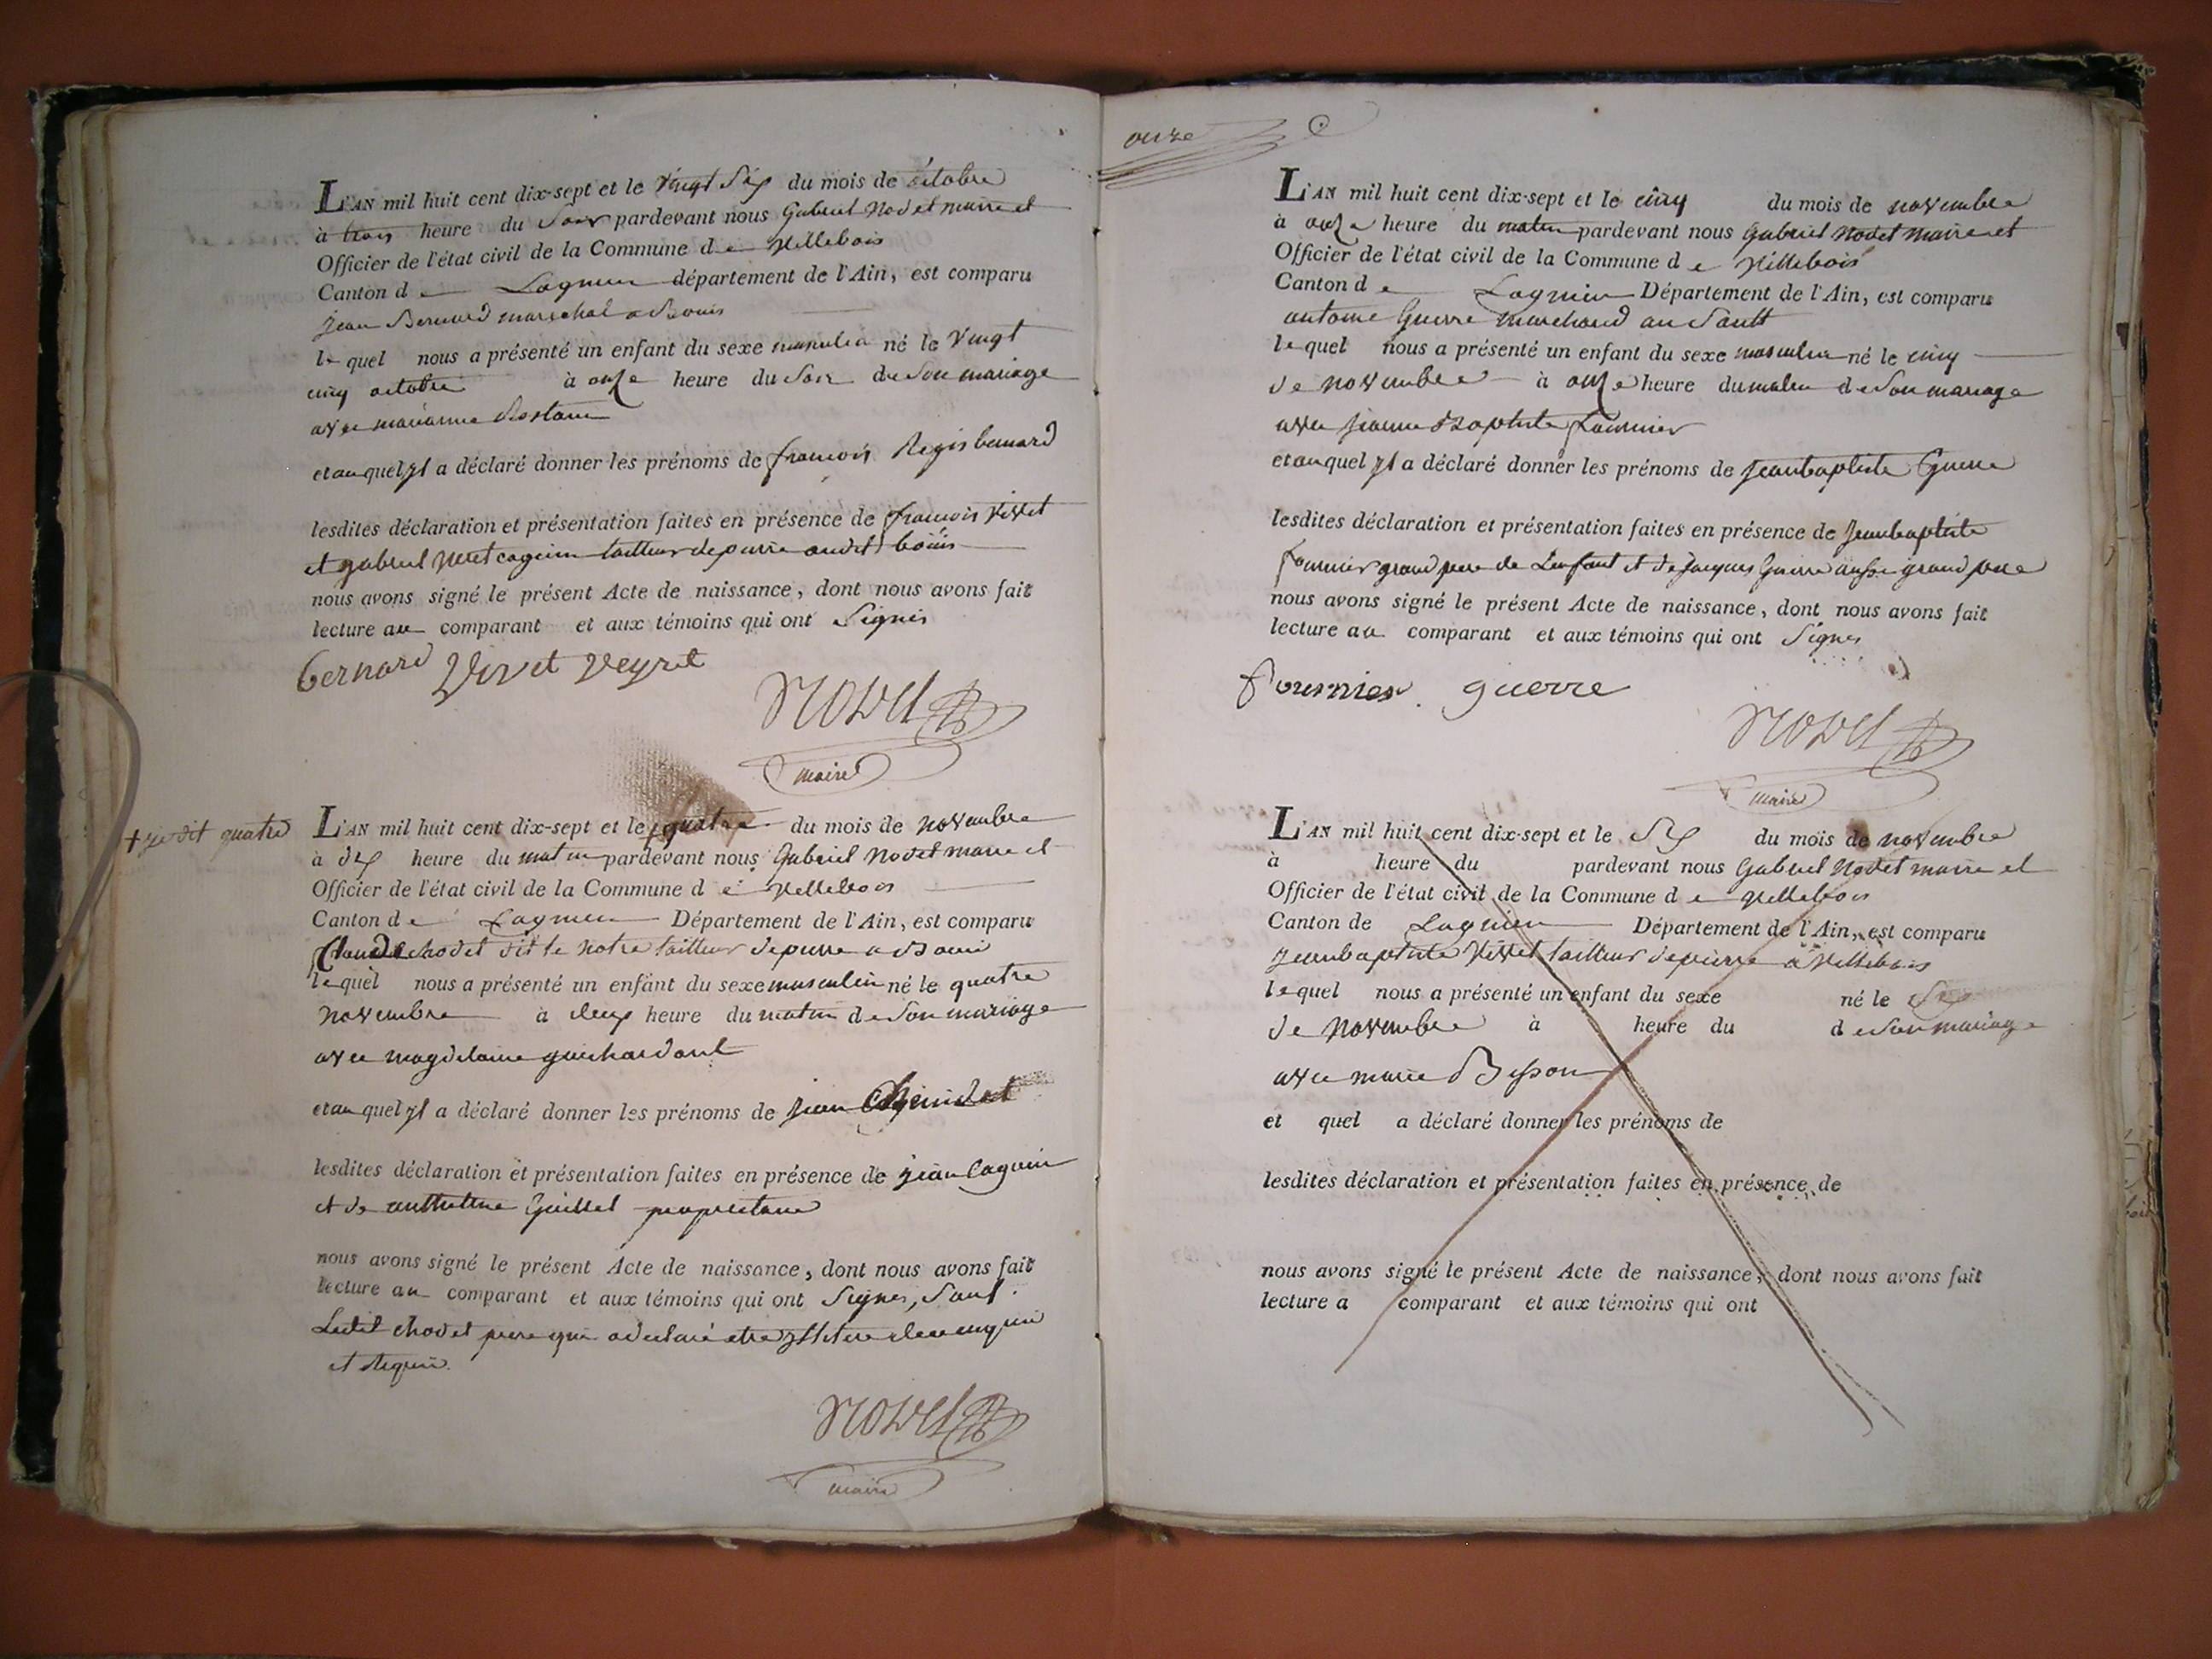 L'AN mil huit cent dix-sept et le vingt Six du mois de octobre
à trois heure du Soir pardevant nous Gabriel Nodet maire et
Officier de l'état civil de la Commune d e Villebois
Canton d e Lagnieu département de l'Ain, est comparu
jean Bernard marechal a Bouis
le quel nous a présenté un enfant du sexe masculin né le Vingt
cinq octobre à onze heure du Soir de Son mariage
avec marianne Rostain
et au quel yl a déclaré donner les prénoms de françois Regis bernard
lesdites déclaration et présentation faites en présence de françois Vivet
et gabriel Veret cagnin tailleur de pierre audit bouis
nous avons signé le présent Acte de naissance, dont nous avons fait
lecture au comparant et aux témoins qui ont Signés
bernard Vivet Veyret
NODET
maire
+ je dit quatre
L'AN mil huit cent dix-sept et le quatre du mois de novembre
à dix heure du matin pardevant nous Gabriel Nodet maire et
Officier de l'état civil de la Commune d e Villebois
Canton d e Lagnieu Département de l'Ain, est comparu
Claude chodet dit le notre tailleur de pierre a Bouis
le quel nous a présenté un enfant du sexe masculin né le quatre
novembre à deux heure du matin de Son mariage
avec magdelaine guichardant
et au quel yl a déclaré donner les prénoms de jean
lesdites déclaration et présentation faites en présence de jean Cagnin
et de anthelme propriétaire
nous avons signé le présent Acte de naissance, dont nous avons fait
lecture au comparant et aux témoins qui ont Signés, Sauf
Ledit chodet pere qui a déclaré etre yllitere de ce enquis
et Requis.
NODET
maire
onze
L'AN mil huit cent dix-sept et le cinq du mois de novembre
à onze heure du matin pardevant nous Gabriel Nodet maire et
Officier de l'état civil de la Commune d e Villebois
Canton d e Lagnieu Département de l'Ain, est comparu
antoine Guerre marchand au Sault
le quel nous a présenté un enfant du sexe masculin né le cinq
de novembre à onze heure du matin de Son mariage
avec jeanne Baptiste fournier
et au quel yl a déclaré donner les prénoms de jeanbaptiste Guerre
lesdites déclaration et présentation faites en présence de jeanbaptiste
fournier grand pere de L'enfant et de jacques Guerre aussi grand pere
nous avons signé le présent Acte de naissance, dont nous avons fait
lecture au comparant et aux témoins qui ont Signés
fournier guerre
NODET
maire
L'AN mil huit cent dix-sept et le Six du mois de novembre
à heure du pardevant nous Gabriel Nodet maire et
Officier de l'état civil de la Commune d e Villebois
Canton de Lagnieu Département de l'Ain, est comparu
jeanbaptiste Vivet tailleur de pierre a Villebois
le quel nous a présenté un enfant du sexe né le Six
de novembre à heure du de Son mariage
avec marie Besson
et quel a déclaré donner les prénoms de
lesdites déclaration et présentation faites en présence de
nous avons signé le présent Acte de naissance, dont nous avons fait
lecture a comparant et aux témoins qui ont